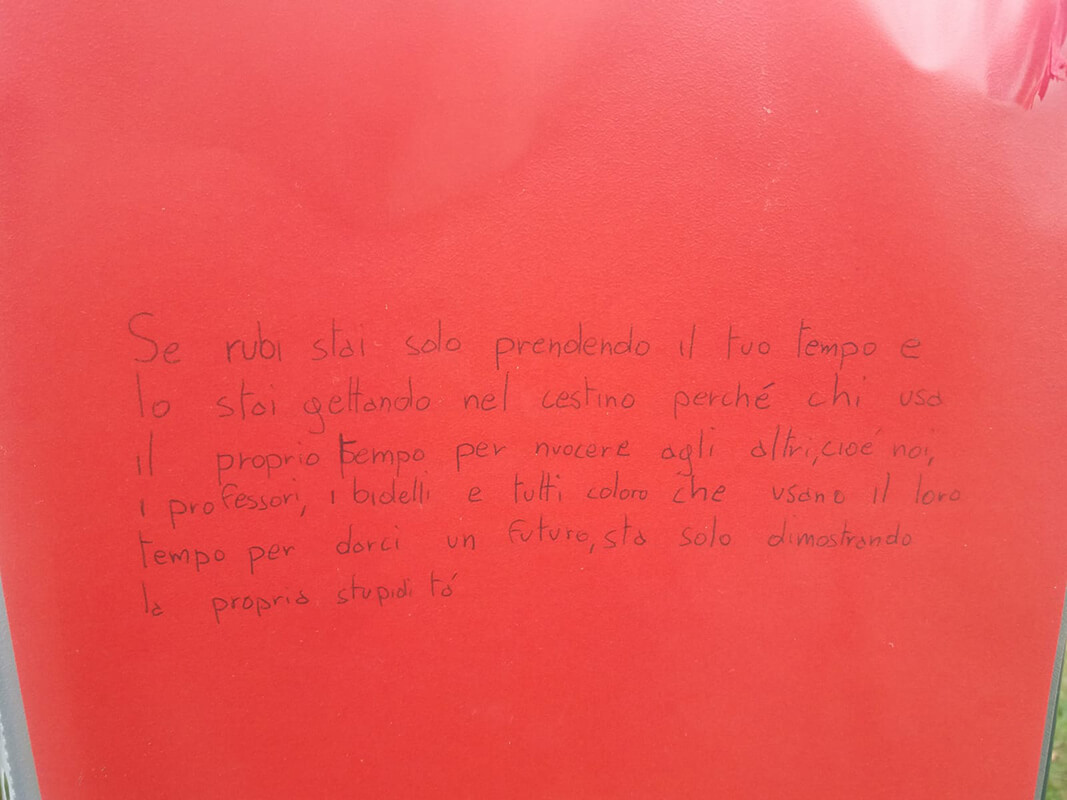 Se rubi stai solo prendendo il tuo tempo e
lo stai gettando nel cestino perché chi usa
il proprio tempo per nuocere agli altri, cioé noi,
i professori, i bidelli e tutti coloro che usano il loro
tempo per darci un futuro, sta solo dimostrando
la propria stupiditá